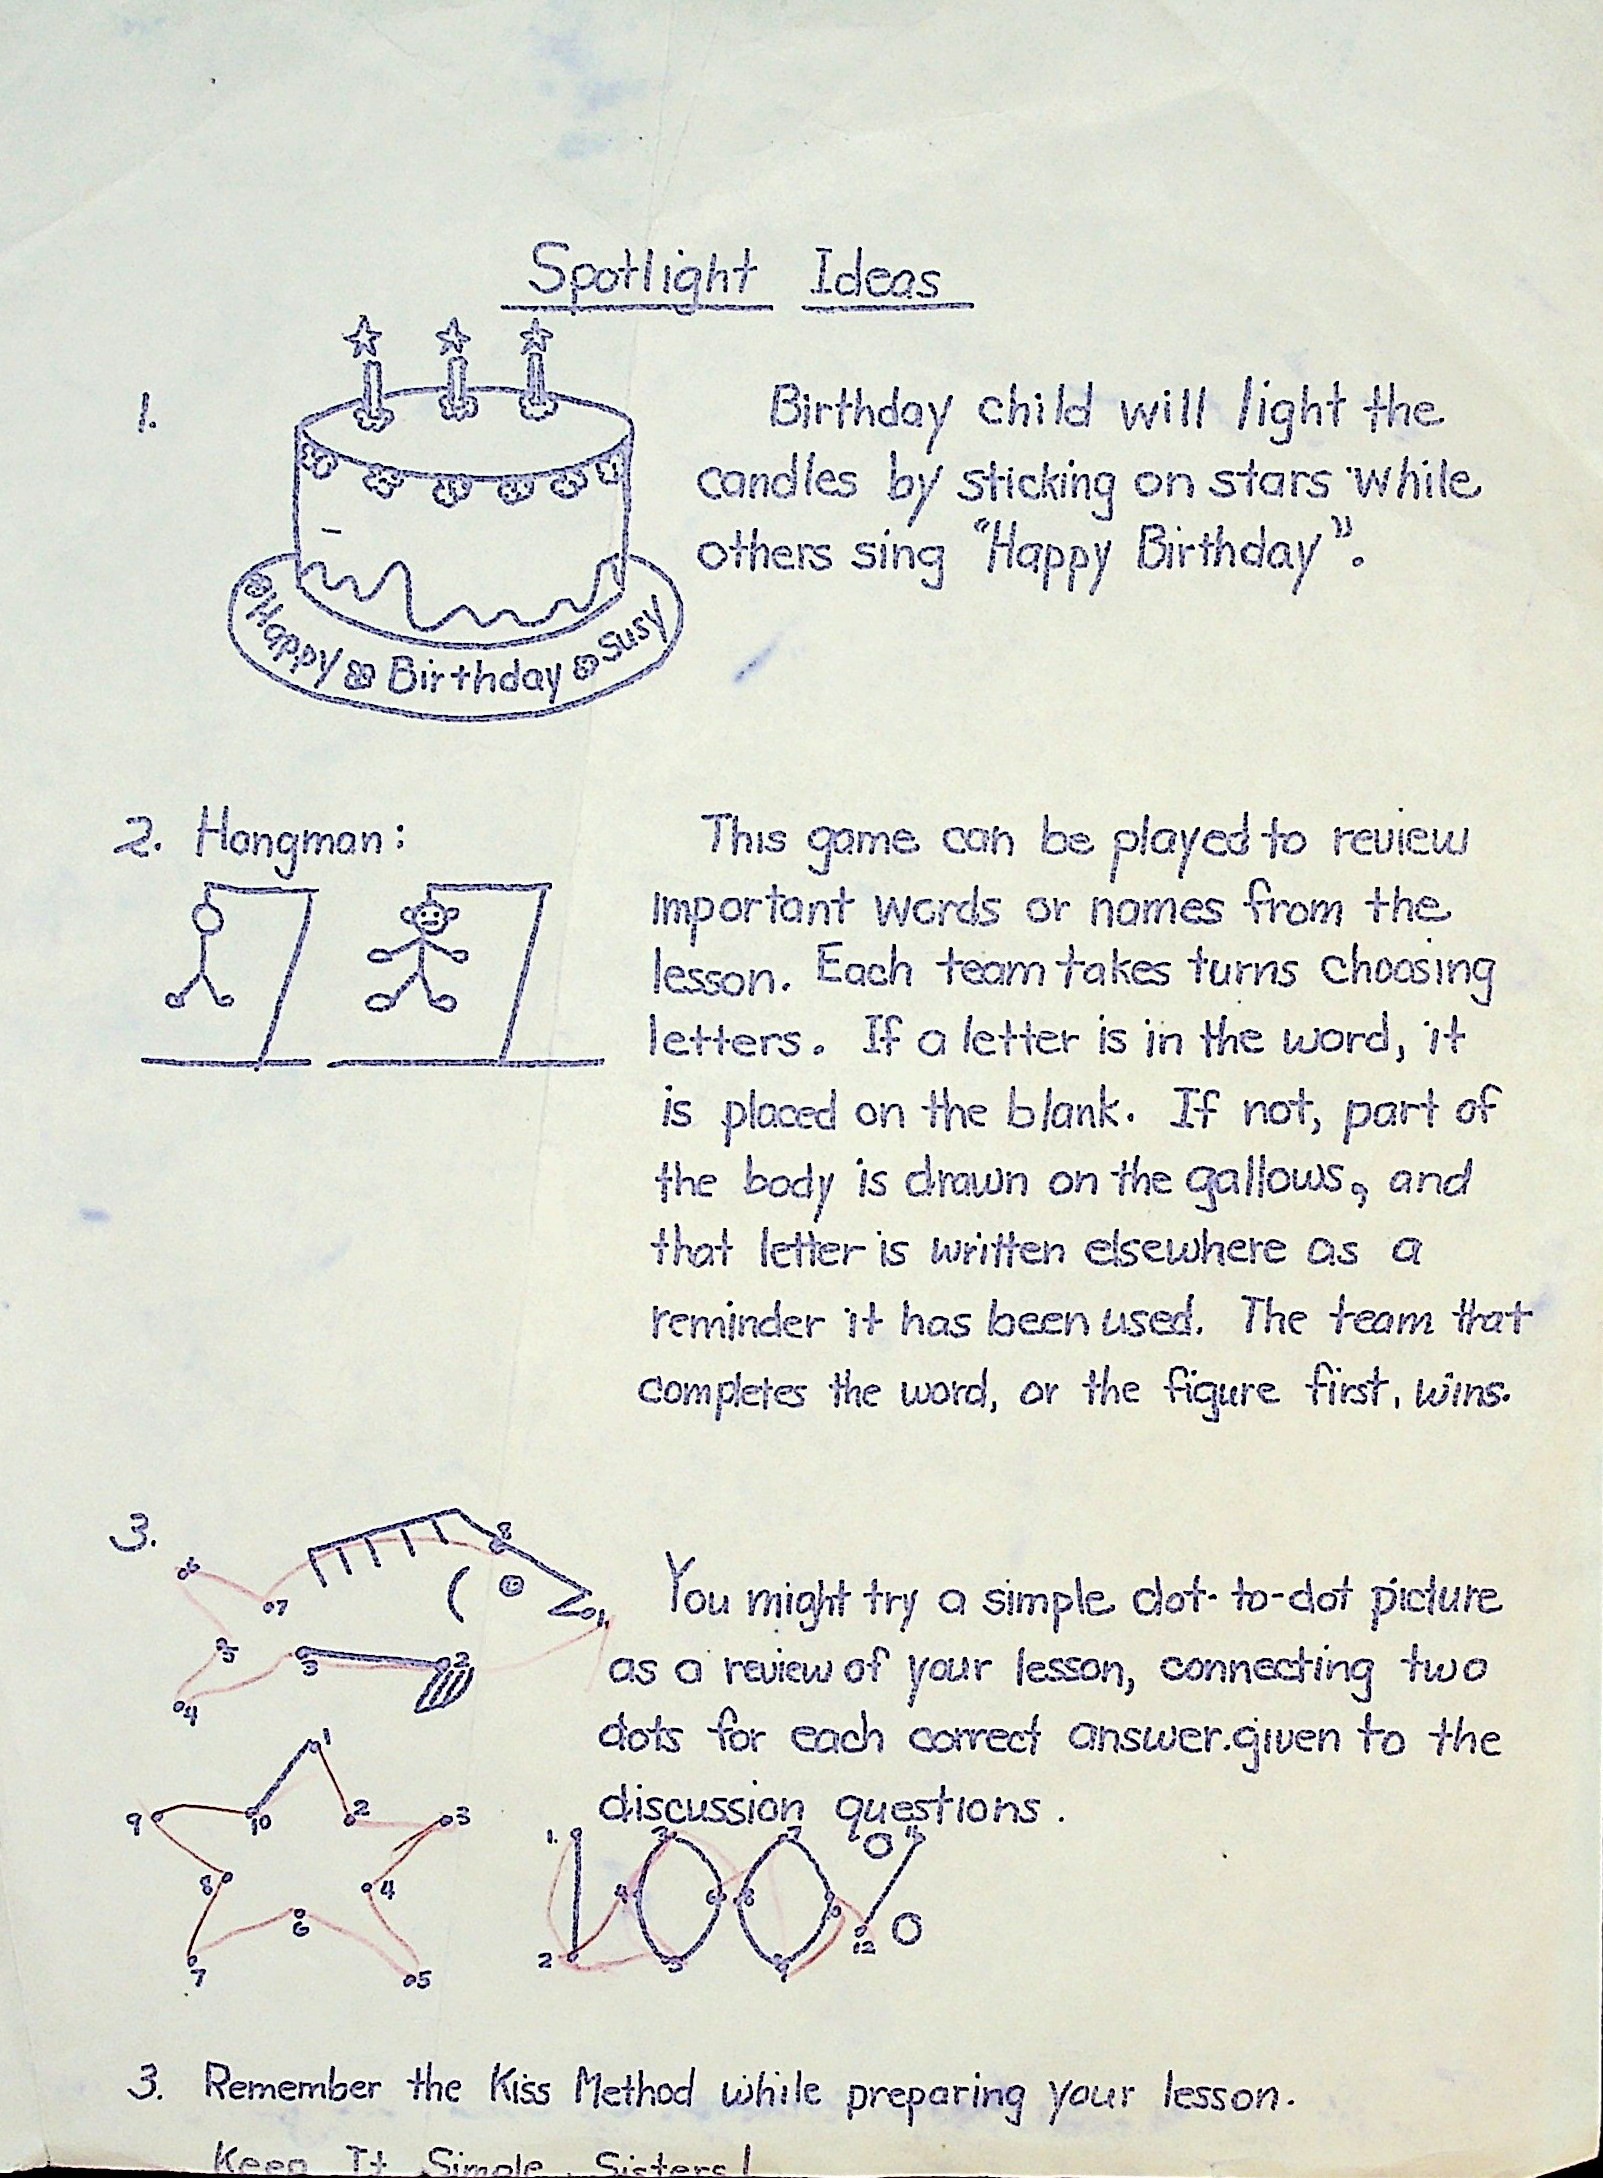 Spotlight Ideas
1.
Birthday child will light the
candles by sticking on stars while
others sing "Happy Birthday".
Happy Birthday Susy
2. Hangman:
This game can be played to review
important words or names from the
lesson. Each team takes turns choosing
letters. If a letter is in the word, it
is placed on the blank. If not, part of
the body is drawn on the gallows, and
that letter is written elsewhere as a
reminder it has been used. The team that
completes the word, or the figure first, wins.
3.
You might try a simple dot-to-dot picture
as a review of your lesson, connecting two
dots for each correct answer.given to the
discussion questions.
6
7
8
1
5
3
2
4
1
9
10
2
3
8
4
6
7
5
1.
3
7
11
4
6
8
2
5
9
12
3. Remember the Kiss Method while preparing your lesson.
Keep It Simple, Sisters!